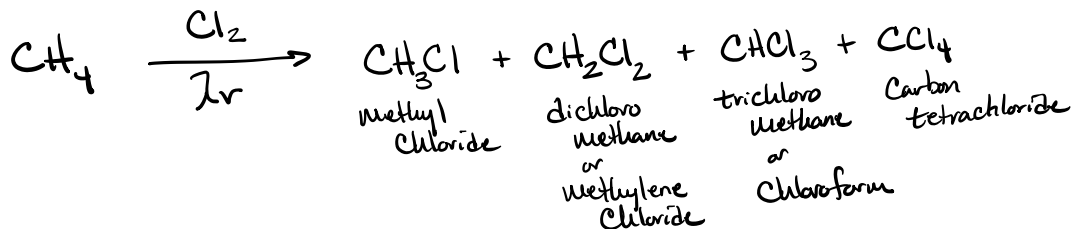 CH₄ Cl₂ λr CH₃Cl + CH₂Cl₂ + CHCl₃ + CCl₄
methyl chloride
dichloro methane or methylene chloride
trichloro methane or chloroform
Carbon tetrachloride